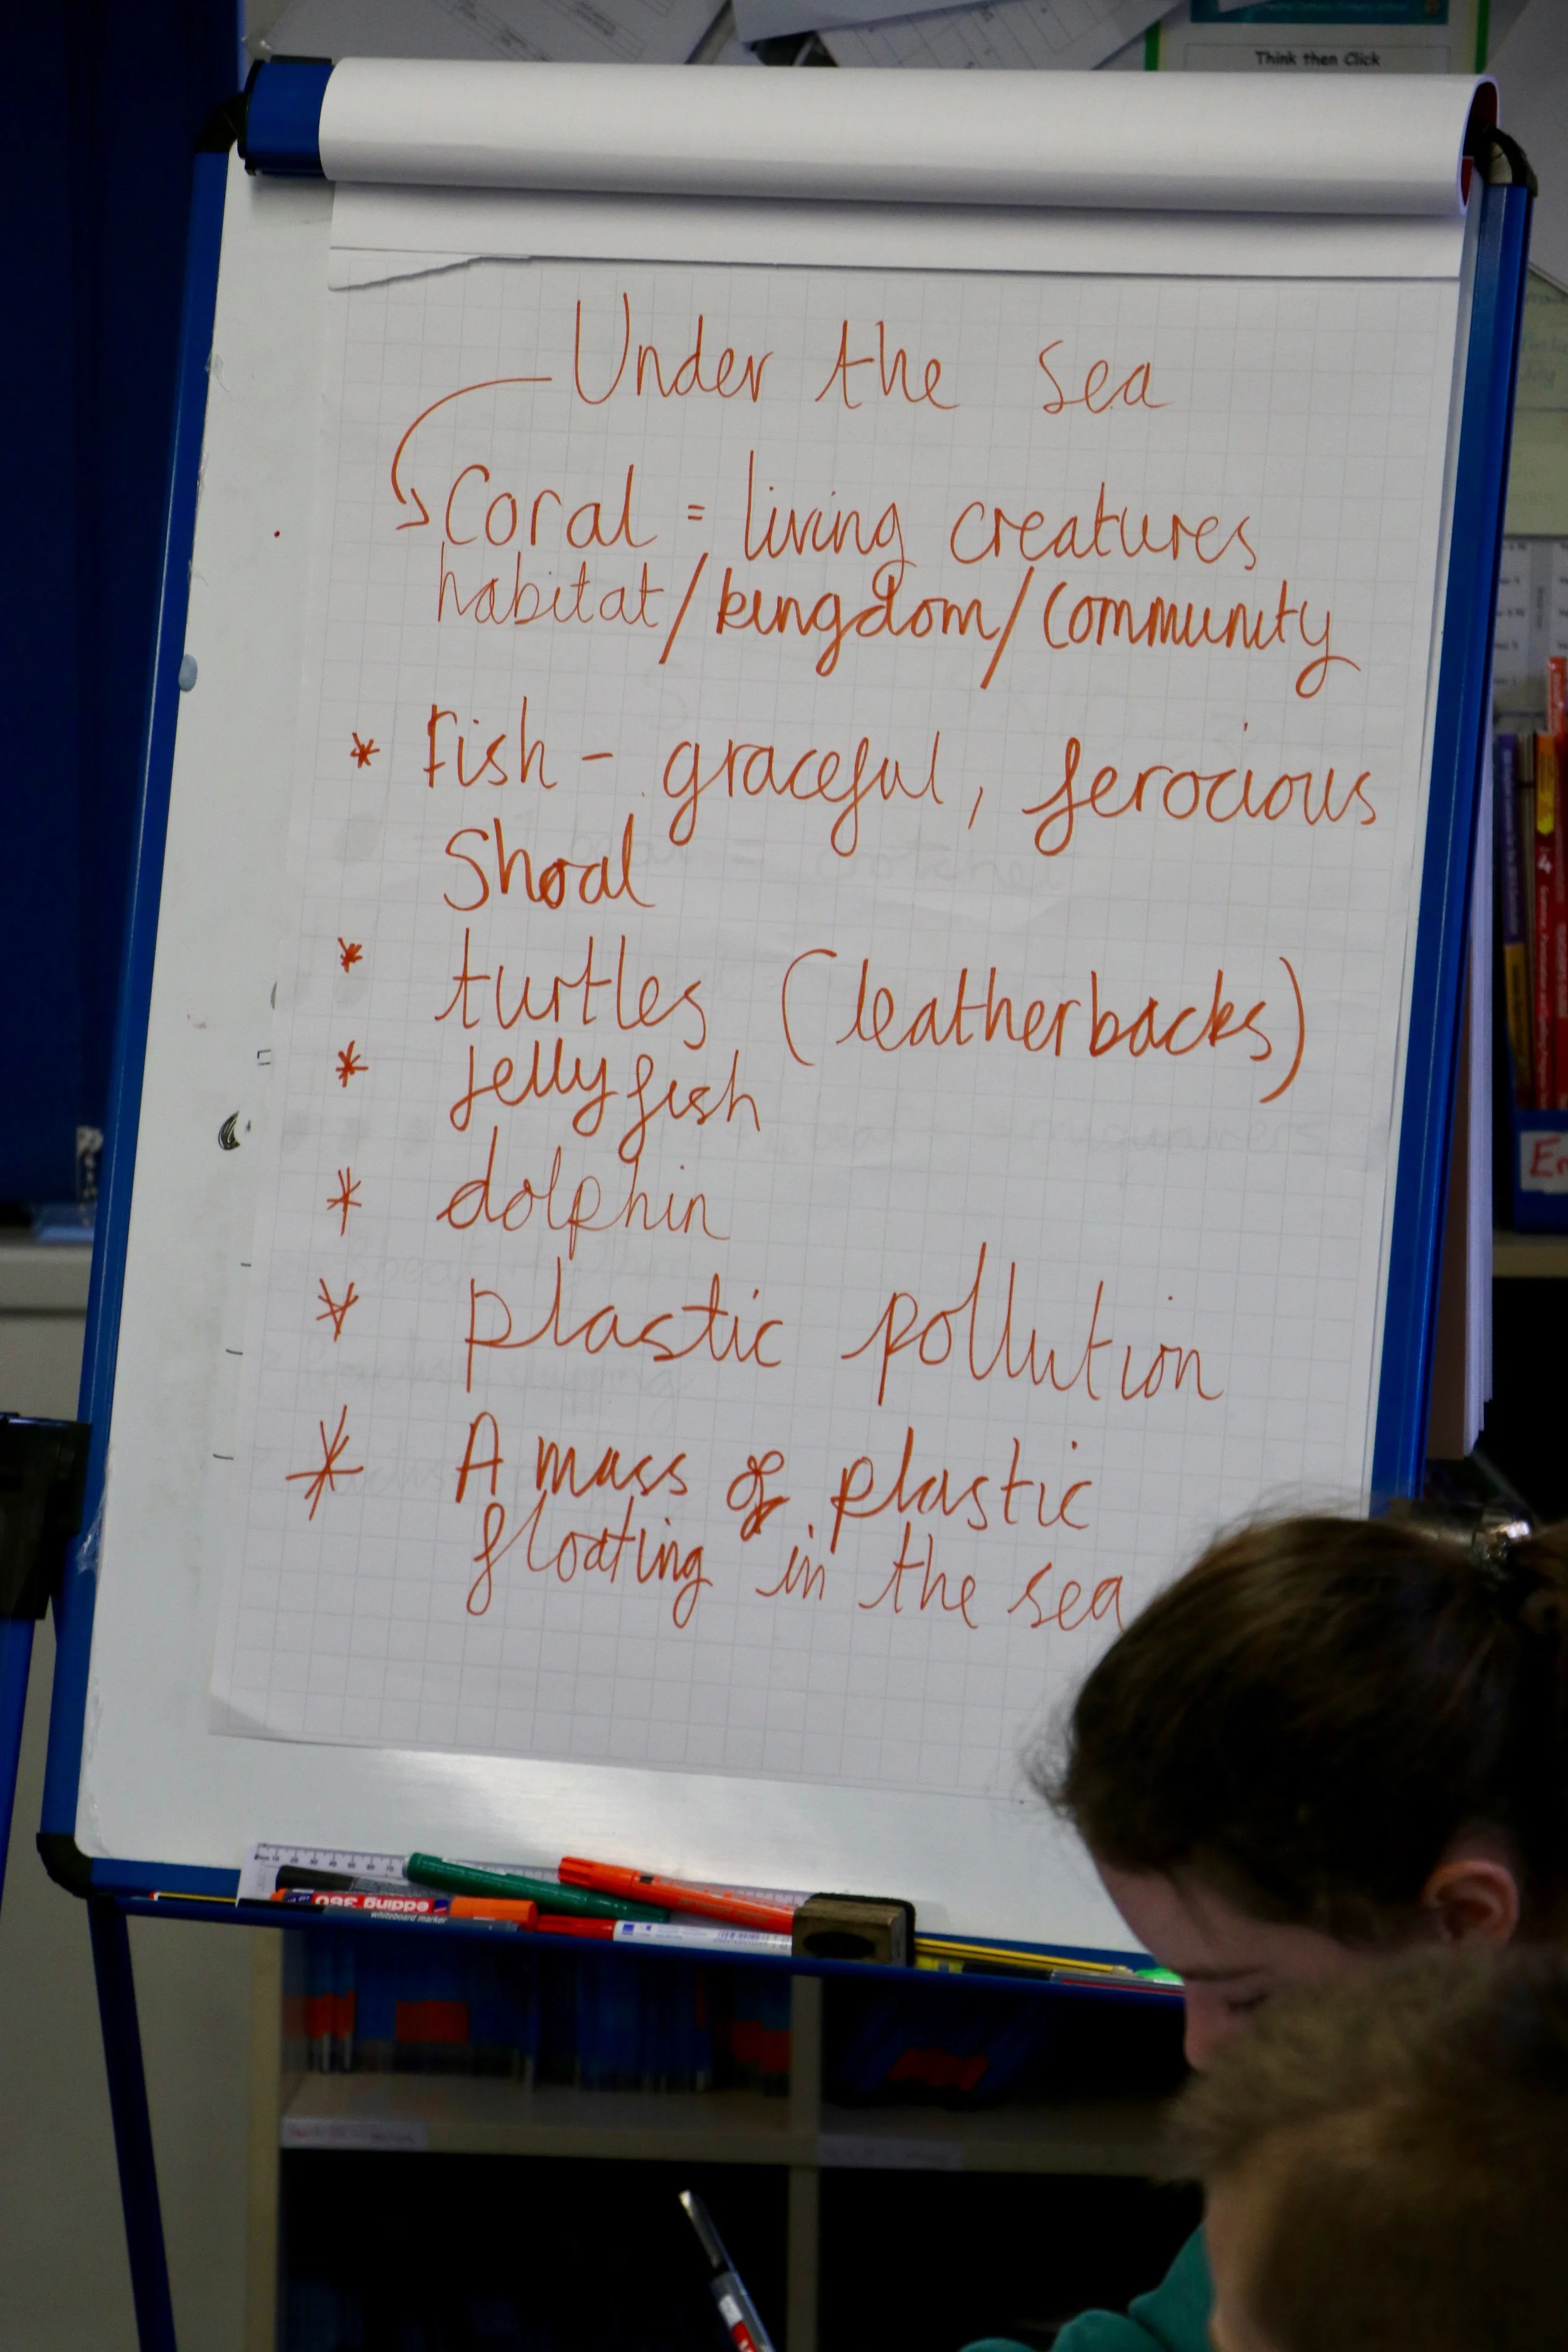 Think then Click
Under the sea
Coral = living creatures
habitat/kingdom/community
* Fish - graceful, ferocious
Shoal
* turtles (leatherbacks)
* Jellyfish
* dolphin
* plastic pollution
* A mass of plastic
floating in the sea
En
4
edding 360
whiteboard marker